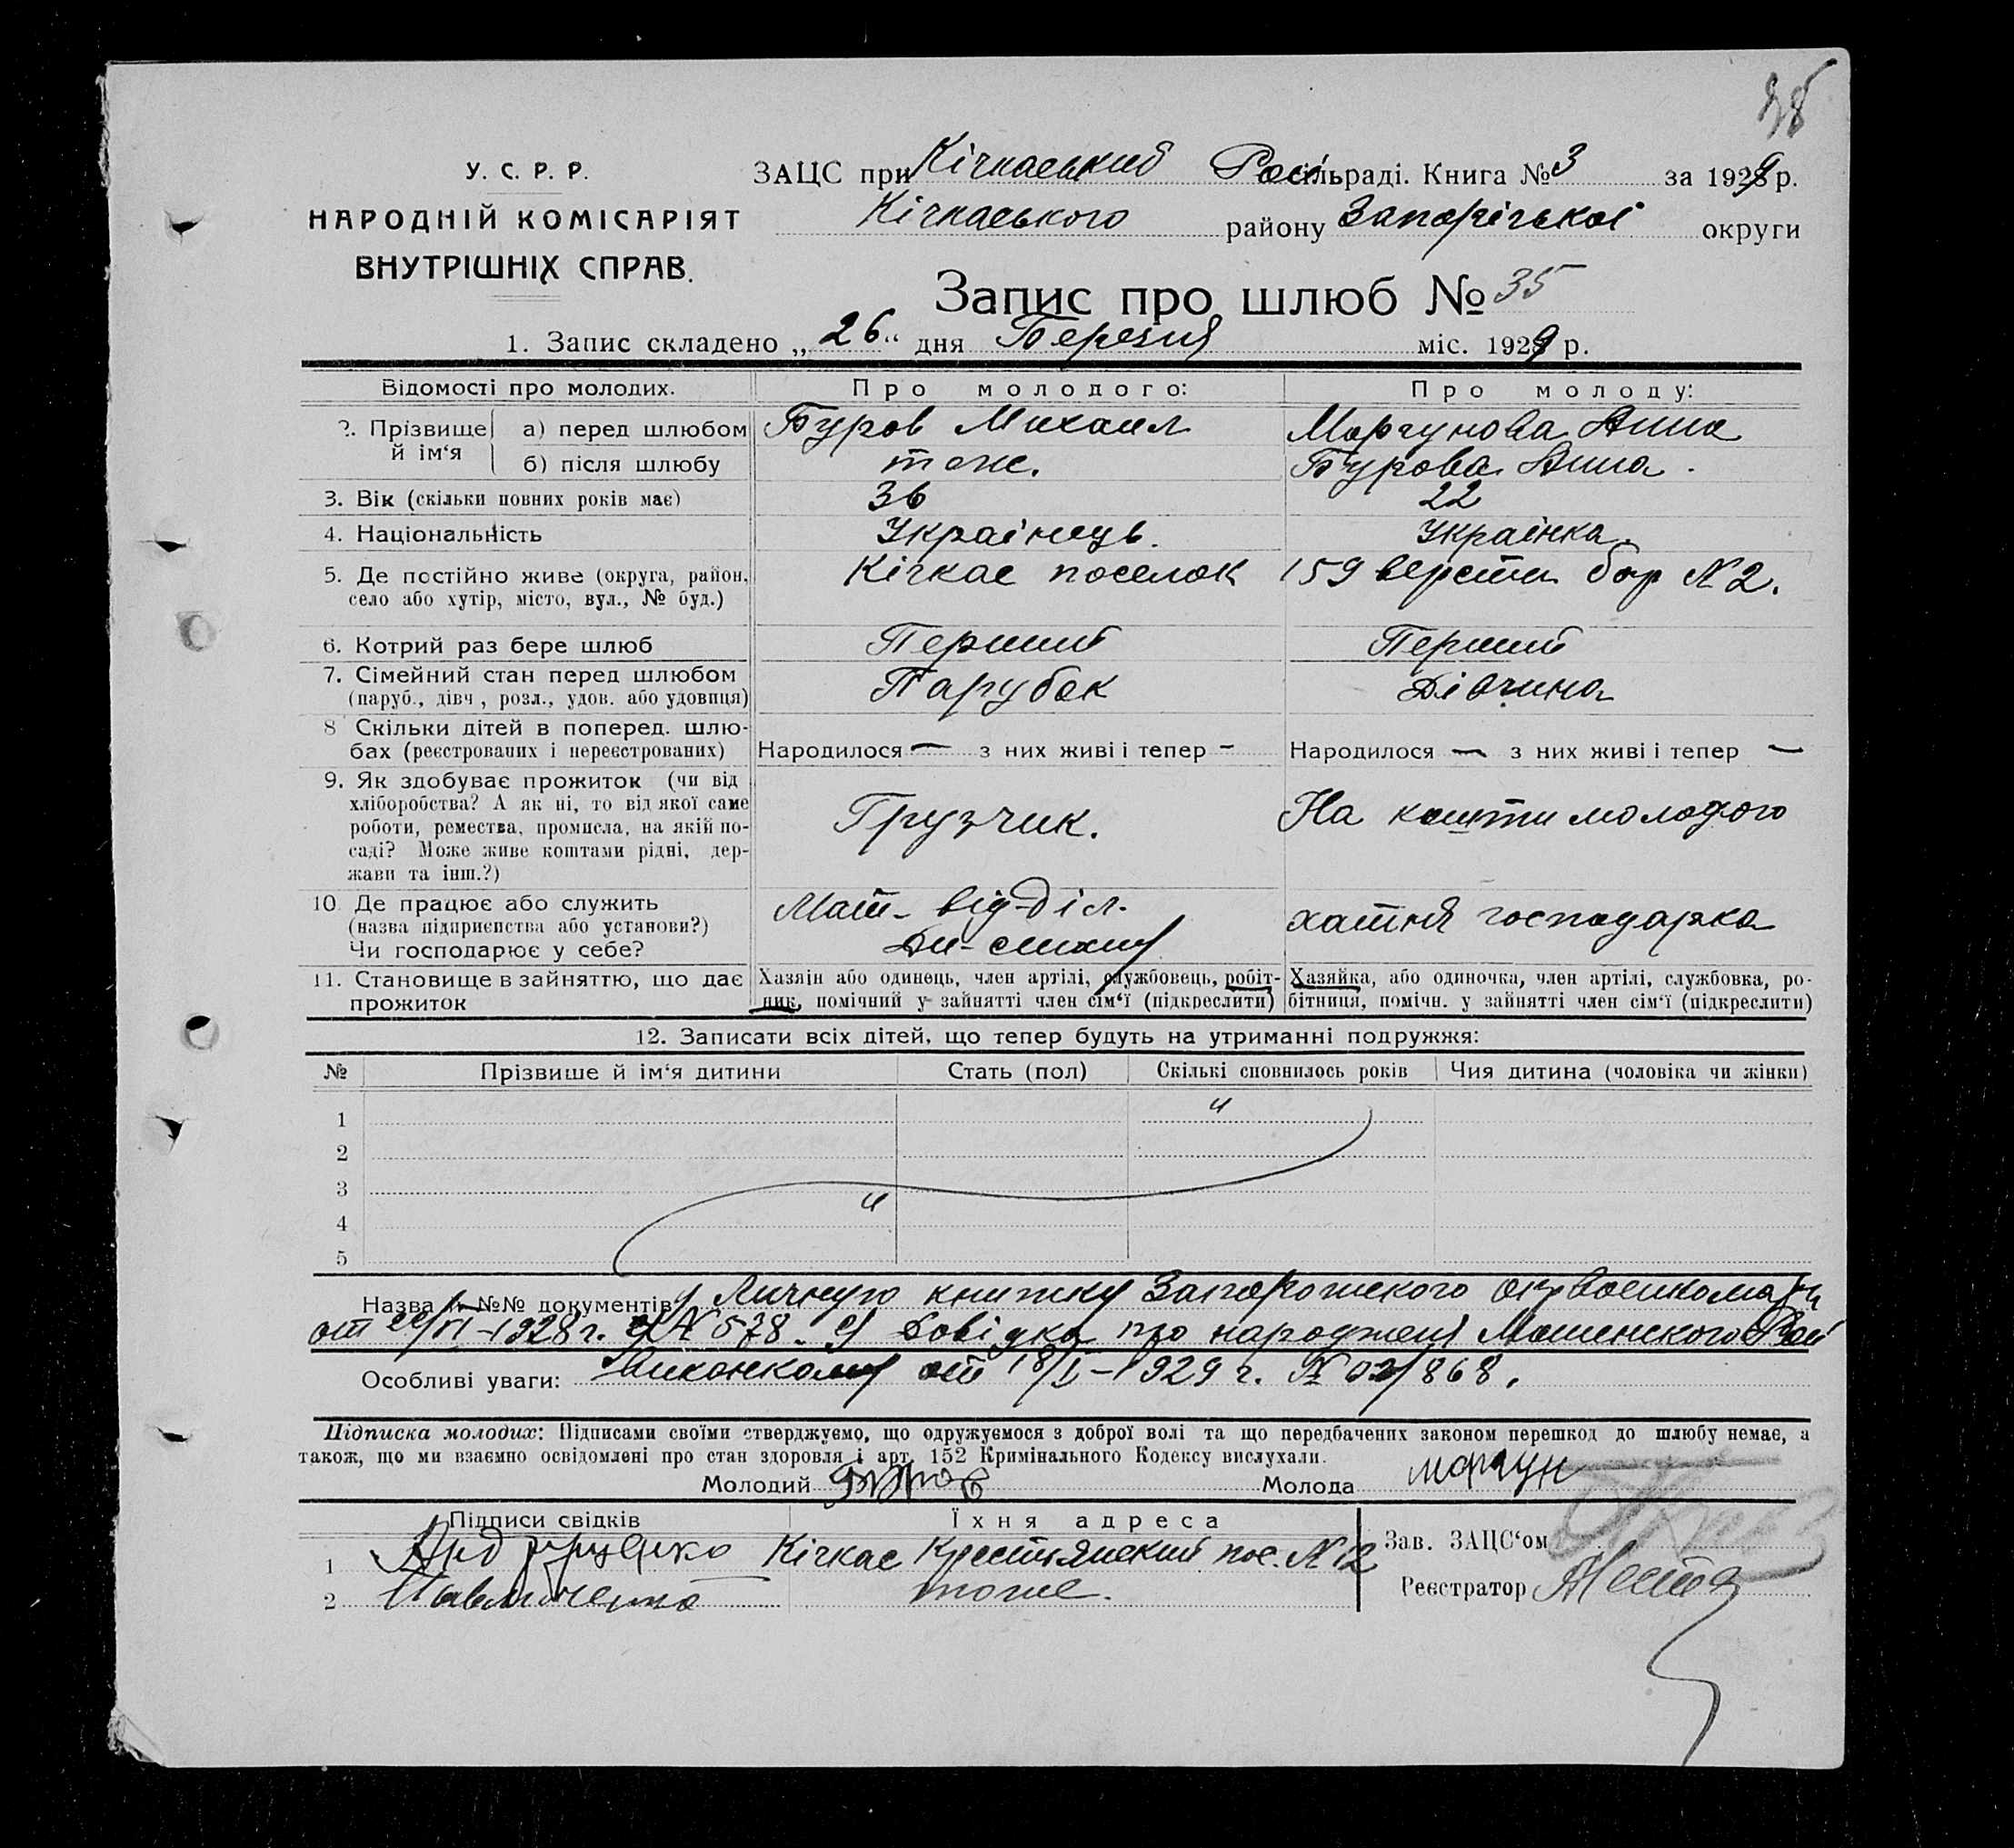 38
У. С. Р. Р.
НАРОДНІЙ КОМІСАРІЯТ
ВНУТРІШНІХ СПРАВ.
ЗАЦС при Кічкаський сільраді. Книга № 3 за 1929 р.
Кічкаського району Запорізької округи
Запис про шлюб № 35
1. Запис складено „26“ дня Березня міс. 1929 р.
Відомості про молодих. Про молодого: Про молоду:
2. Прізвище й ім‘я а) перед шлюбом Буров Михаил Моргунова Анна
б) після шлюбу тож. Бурова Анна.
3. Вік (скільки повних років має) 36 22
4. Національність Українець. Українка.
5. Де постійно живе (округа, район, Кічкас поселок 159 верста бар № 2.
село або хутір, місто, вул., № буд.)
6. Котрий раз бере шлюб Перший Перший
7. Сімейний стан перед шлюбом Парубок Дівчина
(паруб., дівч., розл., удов. або удовиця)
8 Скільки дітей в поперед. шлю-
бах (реєстрованих і нереєстрованих) Народилося — з них живі і тепер - Народилося — з них живі і тепер —
9. Як здобуває прожиток (чи від
хліборобства? А як ні, то від якої саме
роботи, ремества, промисла, на якій по- Грузчик. На кошти молодого
саді? Може живе коштами рідні, дер-
жави та інш.?)
10. Де працює або служить Мат- від-діл.
(назва підприємства або установи?) хатня господарка
Чи господарює у себе?
11. Становище в зайняттю, що дає Хазяїн або одинець, член артілі, службовець, робіт- Хазяйка, або одиночка, член артілі, службовка, ро-
прожиток ник, помічний у зайнятті член сім‘ї (підкреслити) бітниця, помічн. у зайнятті член сім‘ї (підкреслити)
12. Записати всіх дітей, що тепер будуть на утриманні подружжя:
№ Прізвише й ім‘я дитини Стать (пол) Скількі сповнилось років Чия дитина (чоловіка чи жінки)
1
2
3
4
5
Назва й №№ документів Личную книжку Запорожского окрвоенкомата
от VI-1928 г. № 578. Довідка про народження
Особливі уваги: Виконкому от 18/I-1929 г. № 02/868.
Підписка молодих: Підписами своїми стверджуємо, що одружуємося з доброї волі та що передбачених законом перешкод до шлюбу немає, а
також, що ми взаємно освідомлені про стан здоровля і арт. 152 Кримінального Кодексу вислухали.
Молодий Буров Молода Моргун
Підписи свідків Їхня адреса
1 Кічкас Крестянский пос. № 12 Зав. ЗАЦС‘ом
2 Павличенко тоже. Реєстратор